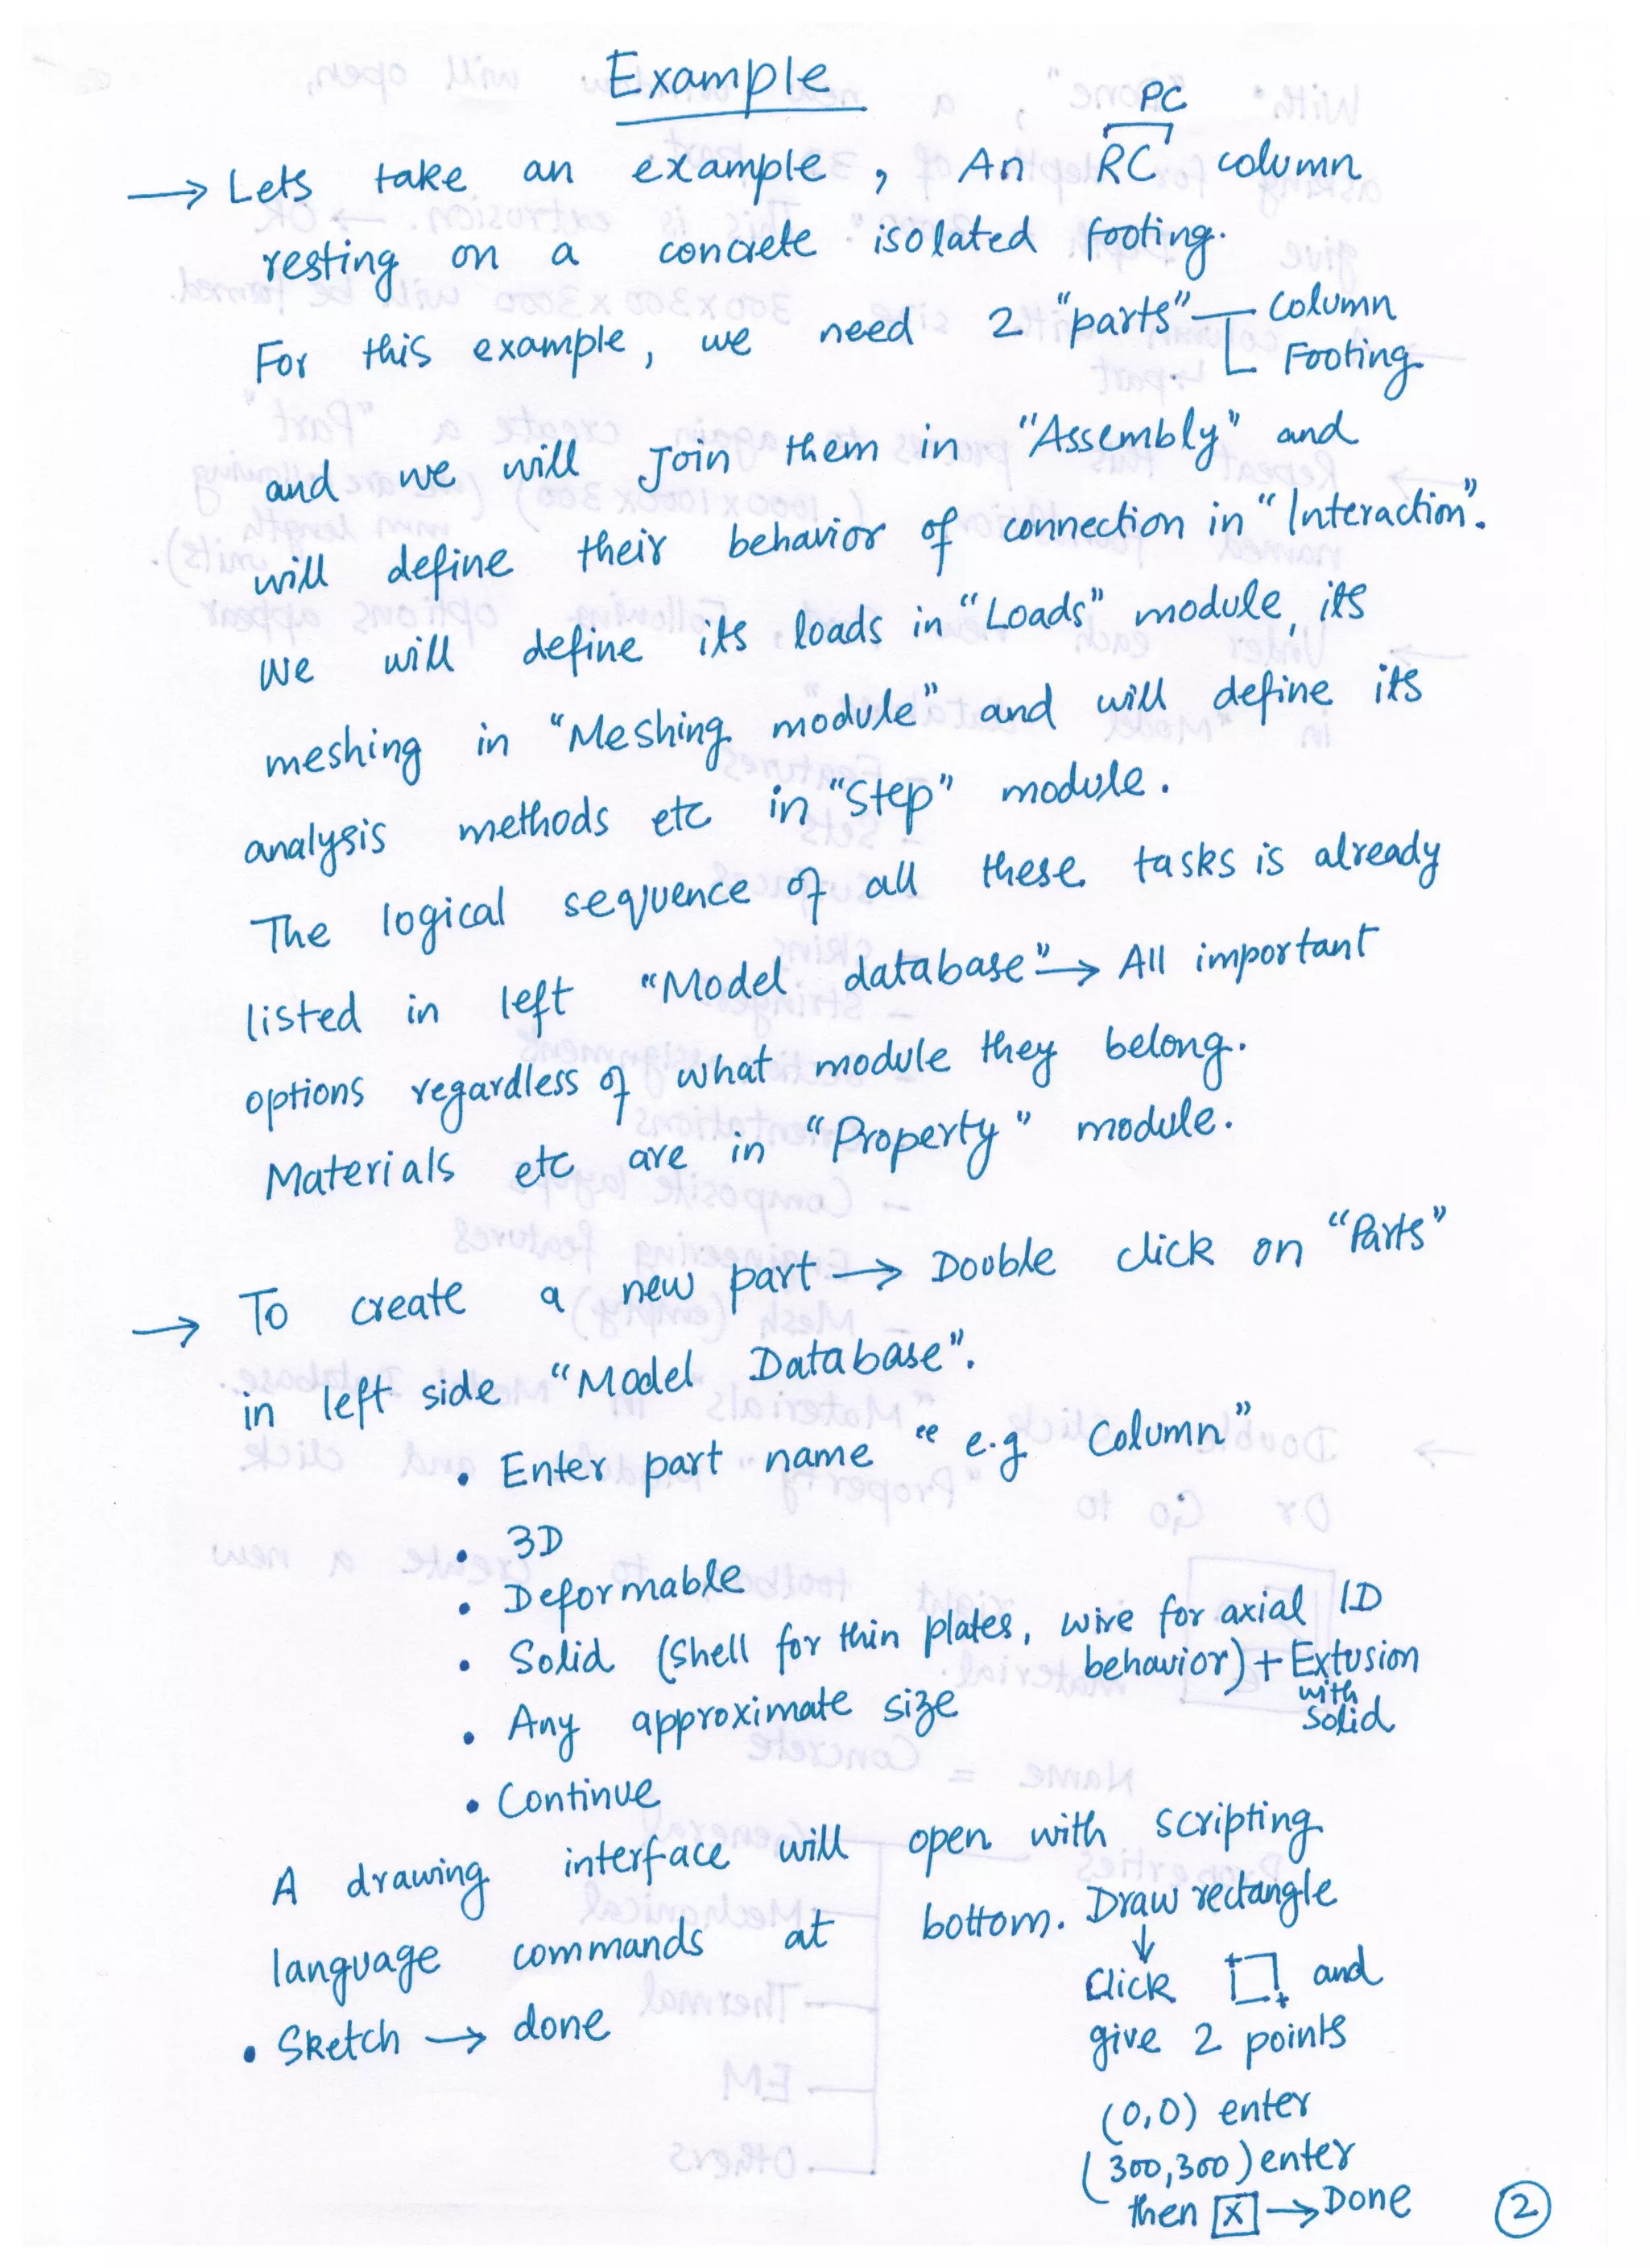 Example
PC
→ Lets take an example, An RC column
resting on a concrete isolated footing.
For this example, we need 2 "parts" Column
Footing
and we will Join them in "Assembly" and
will define their behavior of connection in "Interaction".
We will define its loads in "Loads" module, its
meshing in "Meshing module" and will define its
analysis methods etc in "Step" module.
The logical sequence of all these tasks is already
listed in left "Model database" → All important
options regardless of what module they belong.
Materials etc are in "Property" module.
→ To create a new part → Double click on "Parts"
in left side "Model Database".
• Enter part name "e.g Column"
• 3D
• Deformable
• Solid (Shell for thin plates, wire for axial 1D
behavior) + Extusion
with
Solid
• Any approximate size
• Continue
A drawing interface will open with scripting
language commands at bottom. Draw rectangle
↓
Click and
give 2 points
• Sketch → done
(0,0) enter
(300,300) enter
then X → Done
2